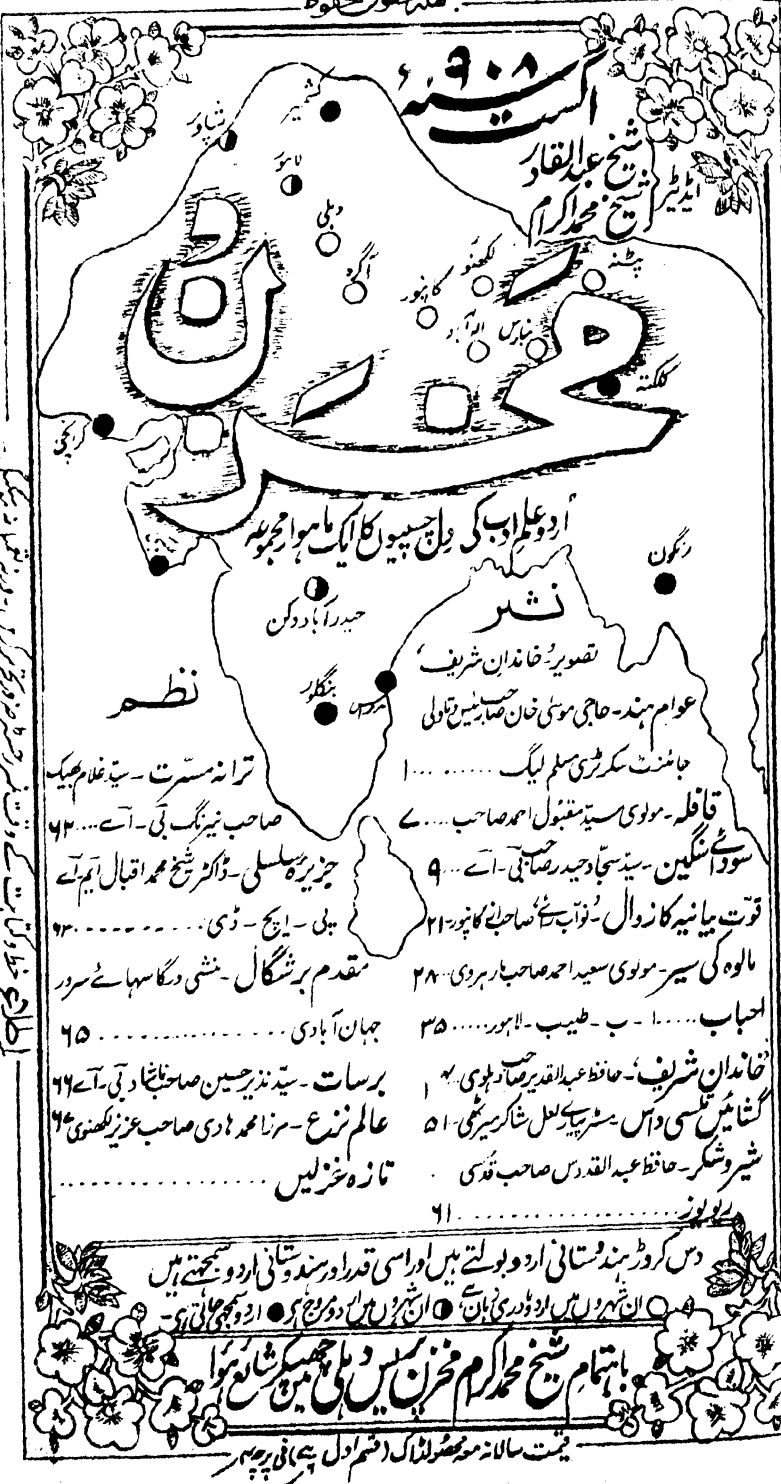 جملہ حقوق محفوظ
اگست سنہ ۹۰۸ء
ایڈیٹر
شیخ عبدالقادر
شیخ محمد اکرام
کشمیر
پشاور
لاہور
دہلی
آگرہ
لکھنؤ
کانپور
پٹنہ
الہ آباد
بنارس
کلکتہ
کراچی
مخزن
اردو علم ادب کی دلچسپیوں کا ایک ماہوار مجموعہ
رنگون
حیدرآباد دکن
بنگلور
مدراس
نثر
تصویر "خاندان شریف"
عوام ہند - حاجی موسیٰ خان صاحب رئیس دتاولی
جائنٹ سکرٹری مسلم لیگ ......... ۱
قافلہ - مولوی سید مقبول احمد صاحب .... ۷
سودائے سنگین - سید سجاد حیدر صاحب بی - اے ... ۹
قوت بیانیہ کا زوال - "نواب رائے" صاحب از کانپور - ۲۱
مالوہ کی سیر - مولوی سعید احمد صاحب مارہروی ... ۲۸
احباب ..... ا - ب - طبیب - لاہور ..... ۳۵
"خاندان شریف" - حافظ عبدالقدیر صاحب دہلوی
گشائیں تلسی داس - مسٹر پیارے لعل شاکر میرٹھی - ۵۱
شیر و شکر - حافظ عبدالقدوس صاحب قدسی
ریویوز .................... ۶۱
نظم
ترانہ مسرت - سید غلام بھیک
صاحب نیرنگ بی - اے ... ۶۲
جزیرہ سسلی - ڈاکٹر شیخ محمد اقبال ایم اے
پی - ایچ - ڈی .......... ۶۳
مقدم برشگال - منشی درگا سہائے سرور
جہان آبادی .............. ۶۵
برسات - سید نذیر حسین صاحب ناشاد بی - اے ۶۶
عالم نزع - مرزا محمد ہادی صاحب عزیز لکھنوی ۶۷
تازہ غزلیں ....................
دس کروڑ ہندوستانی اردو بولتے ہیں اور اسی قدر اور ہندوستانی اردو سمجھتے ہیں
ان شہروں میں اردو مادری زبان ہے ان شہروں میں اردو مروج ہے اردو سمجھی جاتی ہے -
باہتمام شیخ محمد اکرام مخزن پریس دہلی میں چھپکر شائع ہوا
قیمت سالانہ معہ محصولڈاک (قسم اول) فی پرچہ